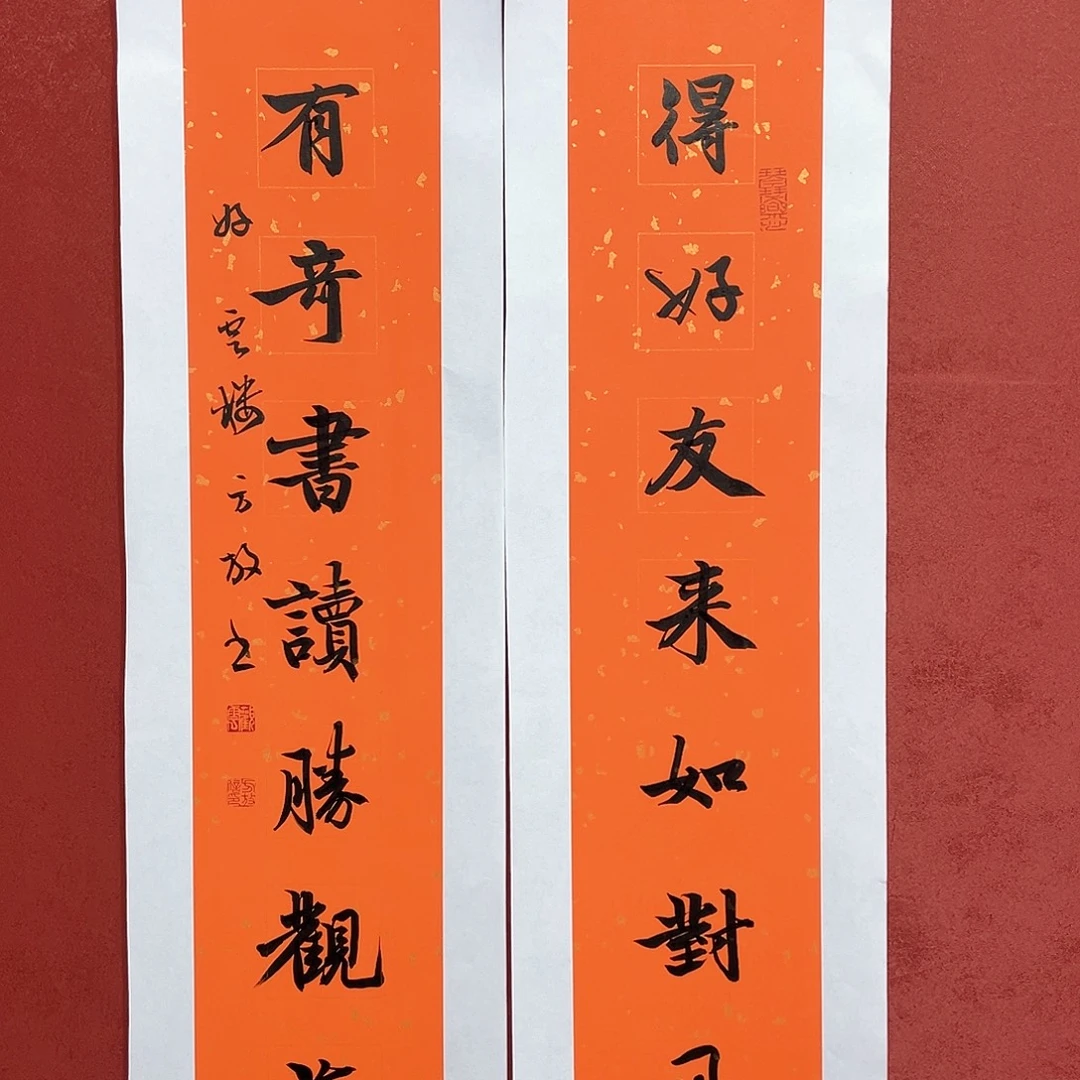 得好友来如對
有奇書讀勝觀
好雲樓方放书